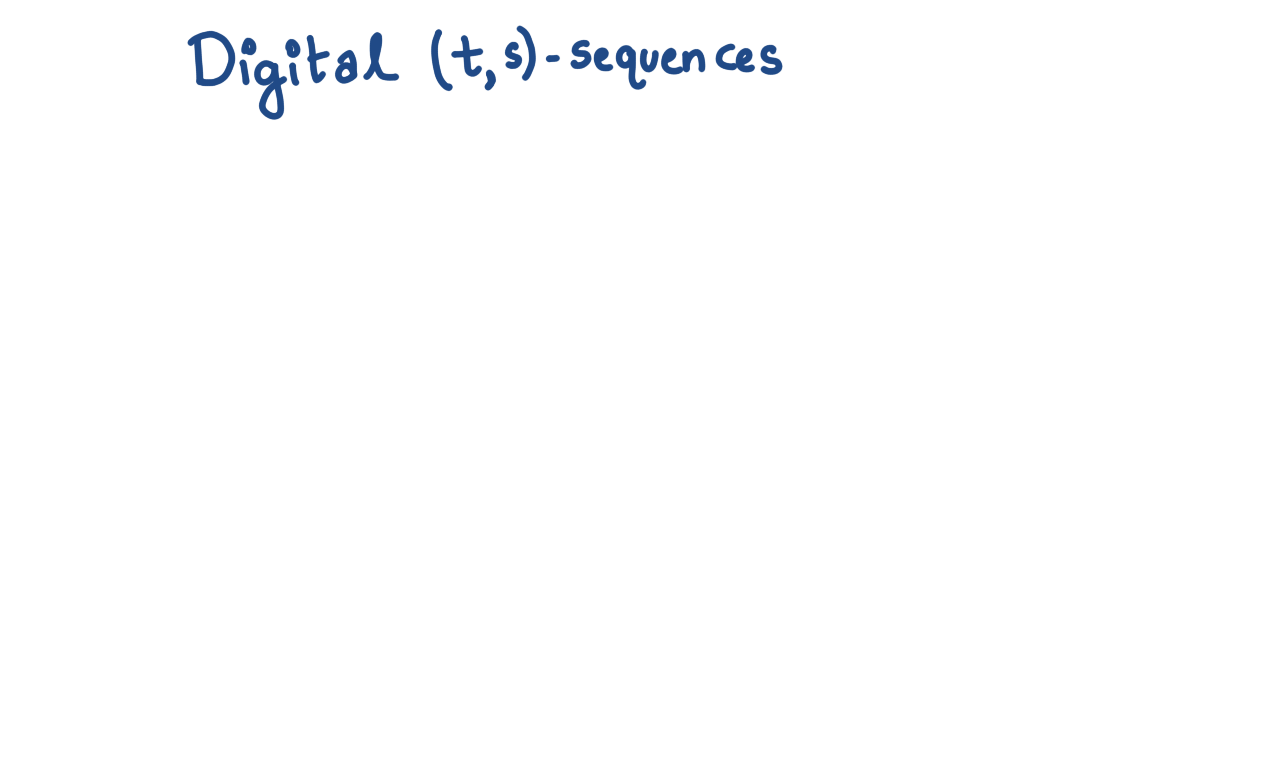 Digital (t,s)-sequences